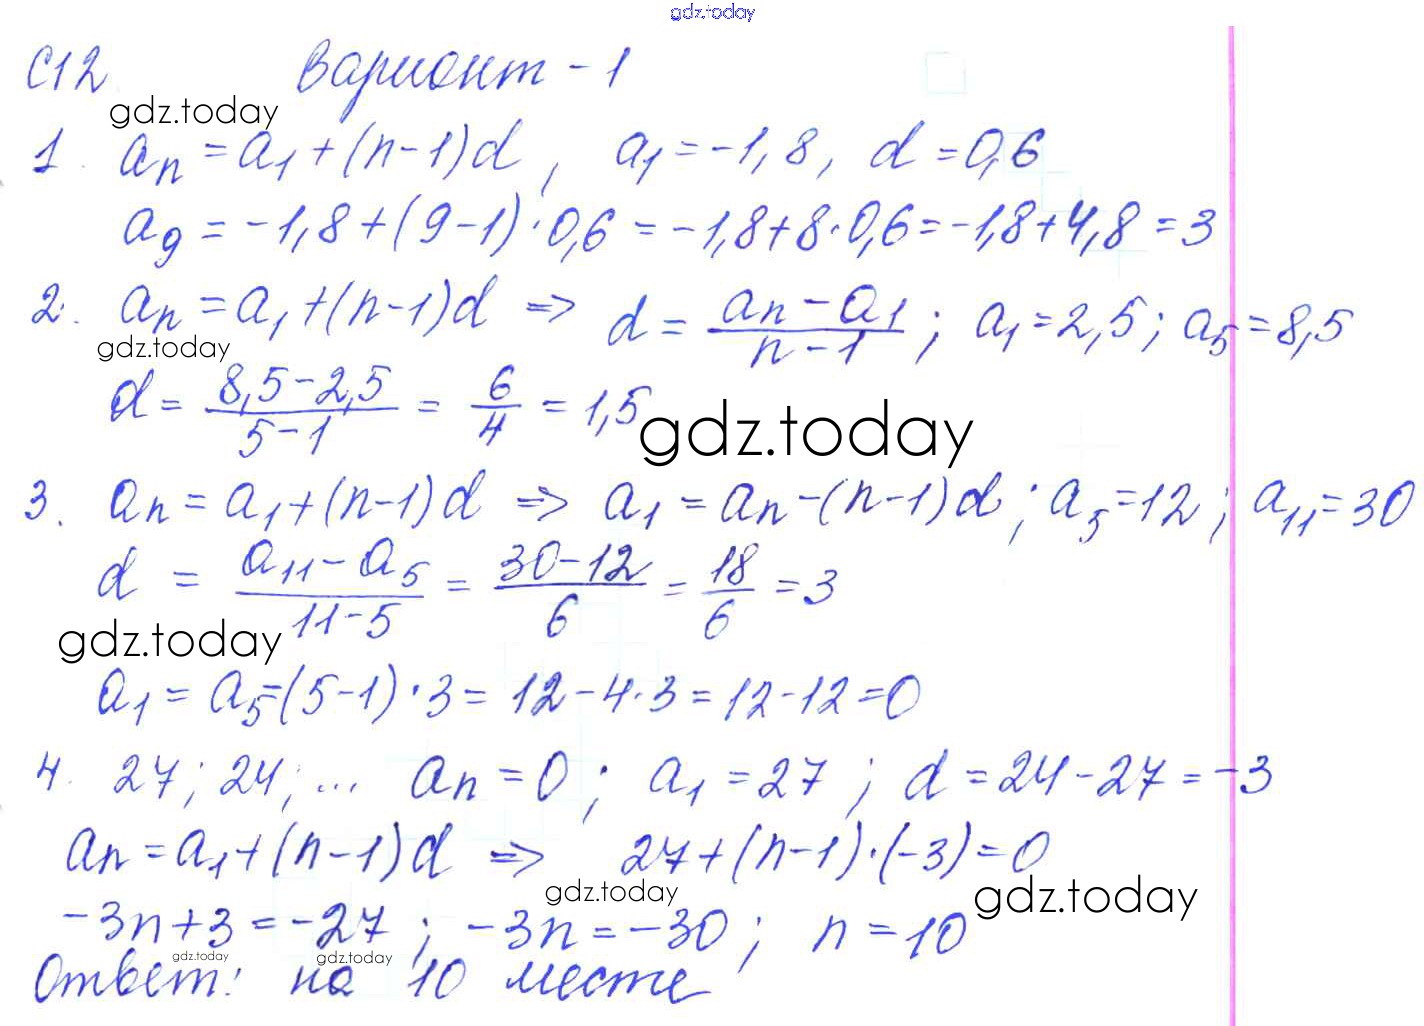 gdz.today
С12 Вариант - 1
gdz.today
1. aₙ = a₁ + (n-1)d, a₁ = -1,8, d = 0,6
a₉ = -1,8 + (9-1)·0,6 = -1,8 + 8·0,6 = -1,8 + 4,8 = 3
2. aₙ = a₁ + (n-1)d => d = (aₙ - a₁)/(n-1); a₁ = 2,5; a₅ = 8,5
gdz.today
d = (8,5 - 2,5)/(5 - 1) = 6/4 = 1,5
gdz.today
3. aₙ = a₁ + (n-1)d => a₁ = aₙ - (n-1)d; a₅ = 12; a₁₁ = 30
d = (a₁₁ - a₅)/(11 - 5) = (30 - 12)/6 = 18/6 = 3
gdz.today
a₁ = a₅ = (5-1)·3 = 12 - 4·3 = 12 - 12 = 0
4. 27; 24; ... aₙ = 0; a₁ = 27; d = 24 - 27 = -3
aₙ = a₁ + (n-1)d => 27 + (n-1)·(-3) = 0
gdz.today
gdz.today
-3n + 3 = -27; -3n = -30; n = 10
gdz.today
gdz.today
Ответ: на 10 месте